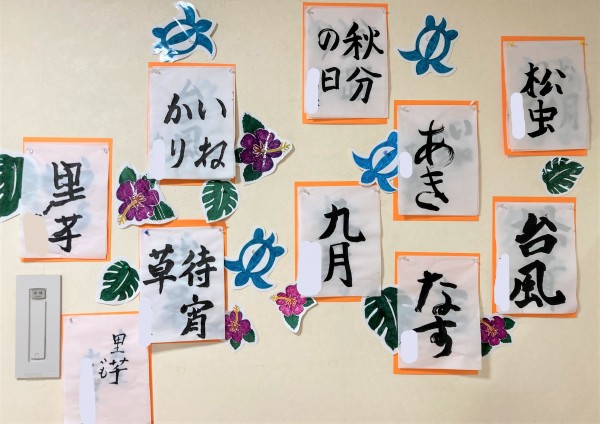 秋分
の日
松虫
いね
かり
あき
里芋
九月
台風
待宵
草
なす
里芋